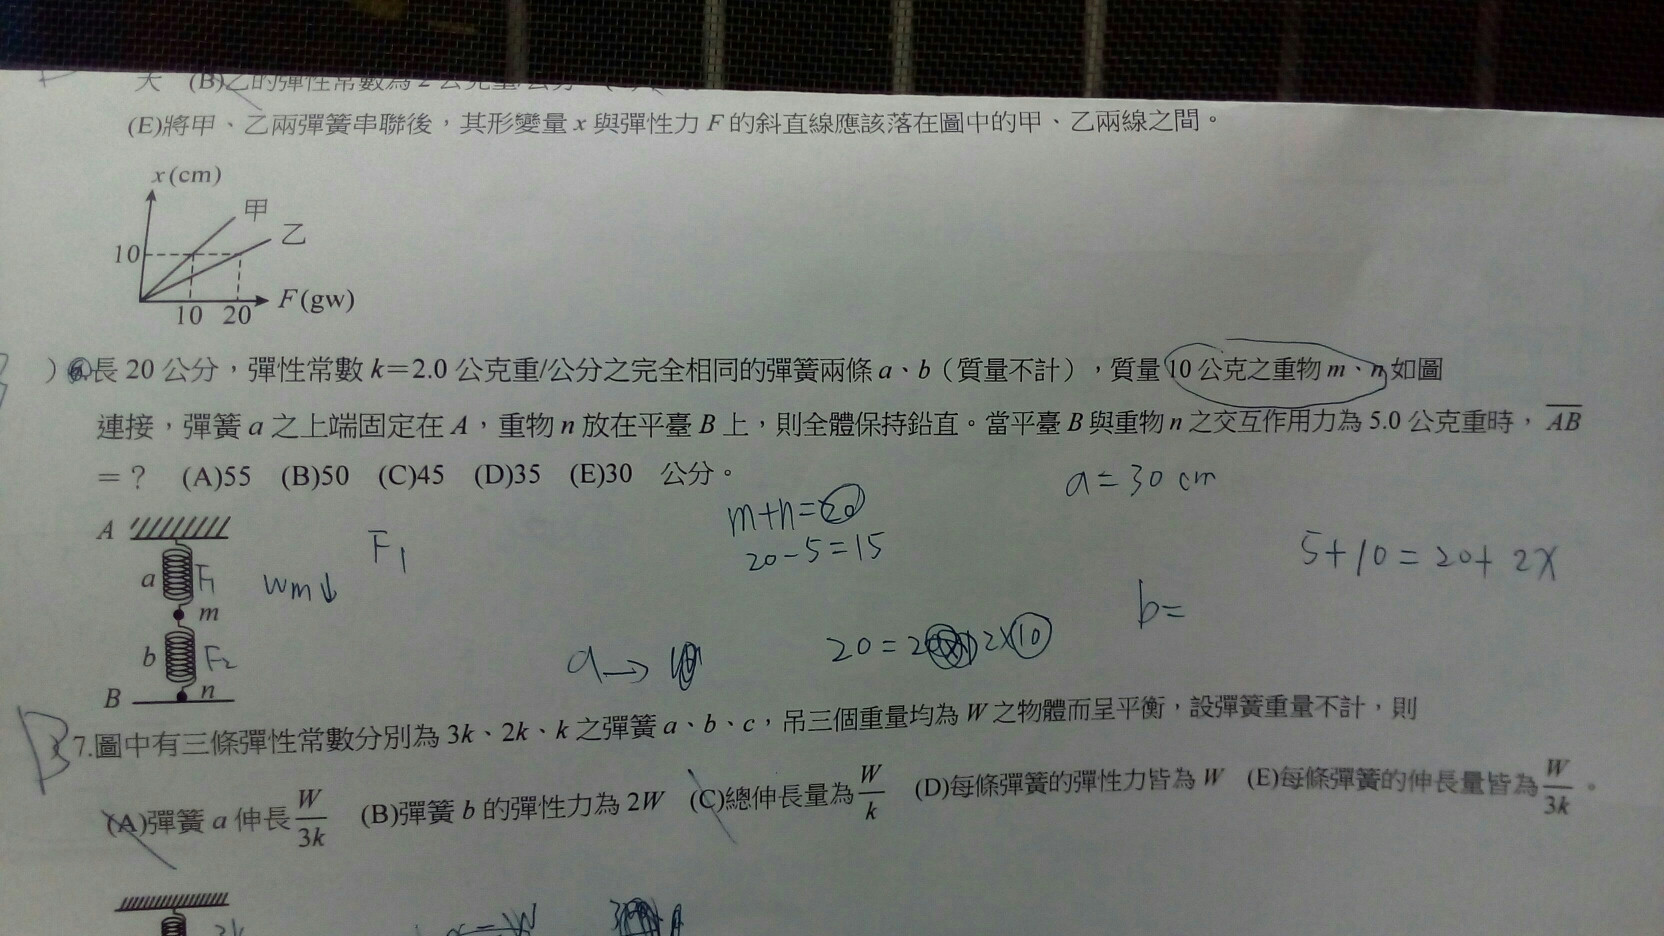 天 (B)乙的彈性常數為 2 公克重/公分
(E)將甲、乙兩彈簧串聯後，其形變量 x 與彈性力 F 的斜直線應該落在圖中的甲、乙兩線之間。
x(cm)
甲
乙
10
10 20
F(gw)
)6.長 20 公分，彈性常數 k＝2.0 公克重/公分之完全相同的彈簧兩條 a、b（質量不計），質量 10 公克之重物 m、n 如圖
連接，彈簧 a 之上端固定在 A，重物 n 放在平臺 B 上，則全體保持鉛直。當平臺 B 與重物 n 之交互作用力為 5.0 公克重時，AB
＝？ (A)55 (B)50 (C)45 (D)35 (E)30 公分。
a=30 cm
m+n=20
20-5=15
5+10=20+2x
A
a F1
Wm↓
F1
m
b F2
B n
b=
20=2 2×10
a→
B
7.圖中有三條彈性常數分別為 3k、2k、k 之彈簧 a、b、c，吊三個重量均為 W 之物體而呈平衡，設彈簧重量不計，則
(A)彈簧 a 伸長 W/3k (B)彈簧 b 的彈性力為 2W (C)總伸長量為 W/k (D)每條彈簧的彈性力皆為 W (E)每條彈簧的伸長量皆為 W/3k。
3k